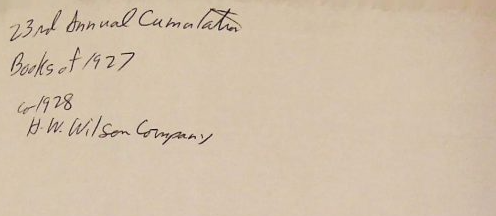 23rd Annual Cumulation
Books of 1927
c-1928
H.W. Wilson Company